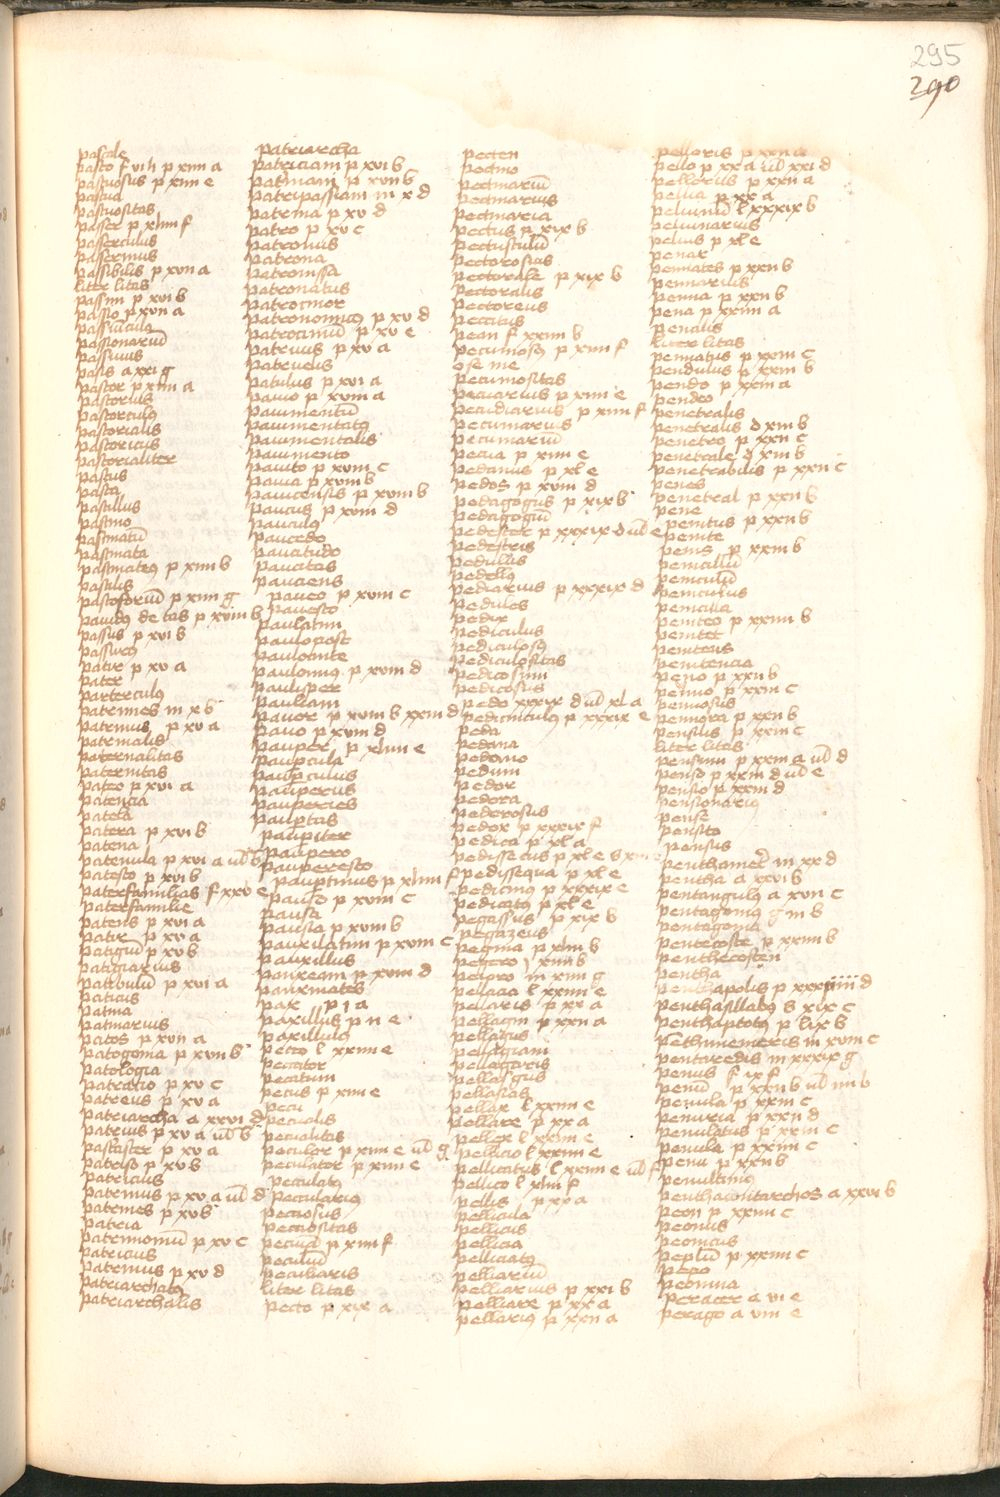 295
290
pascale
pasco f viii p xiiii a
pascuosus p xiiii e
pascua
pascuositas
passer p xliiii f
passerculus
passermus
passibilis p xvii a
liter litas
passim p xvi b
passio p xvii a
passiūculꝰ
passionariū
passiuus
pasis a xxi g
pastor p xiiii a
pastorius
pastorculꝰ
pastorialis
pastoricus
pastorialiter
pastus
pasta
pastillus
pastino
pastinatū
pastinata
pastinatꝰ p xiiii b
pastilis
pastoforiū p xiiii g
pauidꝰ de tas p xviii b
passus p xvi b
passuꝰ
patir p xv a
pater
parterculꝰ
patrines in x b
paternus p xv a
paternalis
paternalitas
paternitas
pateo p xvi a
patencia
patela
patera p xvi b
patena
patenula p xvi a uł b
patesco p xvi b
paterfamilias f xxv e
paterfamilie
patens p xvi a
patir p xv a
patigiū p xv b
patigiarius
patibulū p xvi a
paticus
patina
patinarius
patos p xvii a
patogonia p xvii b
patologia
patracio p xv c
patreus p xv a
patriarcha a xxvi d
patrius p xv a uł b
pastaster p xv a
patriso p xv b
patricius
patrinus p xv a uł d
patrines p xv b
patria
patrimoniū p xv c
patricus
patrinus p xv d
patriarchatꝰ
patriarchalis
patriarcha
patriciani p xvi b
patriani p xvii b
patripassiani in x d
patrina p xv d
patro p xv c
patronus
patrona
patronissa
patronatus
patrocinor
patronomicꝰ p xv d
patrociniū p xv e
patruus p xv a
patruelis
patulus p xvi a
pauio p xvii a
pauimentū
pauimentatꝰ
pauimentalis
pauimento
pauito p xviii c
pauia p xviii b
pauicensis p xviii b
paucus p xviii d
pauculꝰ
paucedo
paucitudo
paucitas
pauciens
paueo p xviii c
pauesco
paulatim
paulopost
pauloante
paulominꝰ p xviii d
paulisper
paullam
pauor p xviii b xxiii d
pauo p xviii d
pauper p xliiii e
paupcula
paupculus
pauperius
pauperies
pauptas
paupiter
paupero
pauperesco
pauptinus p xliiii f
pauso p xviii c
pausa
pausia p xviii b
pauxilatim p xviii c
pauxillus
pauxeani p xviii d
pauxinates
pax p i a
paxillus p ii e
paxillulꝰ
pecco l xxiiii e
peccator
peccatum
pecus p xiiii e
pecu
pecualis
pecualitas
peculor p xiiii e uł g
peculator p xiiii e
peculatꝰ
peculariꝰ
pecuosus
pecuositas
pecuia p xiiii f
peculiū
peculiaris
liter litas
pecto p xix a
pecten
pectino
pectinariū
pectinarius
pectinaria
pectus p xix b
pectusculū
pectorosus
pectorale p xix b
pectoralis
pectoreus
peccitus
pean f xxiiii b
pecuniosꝰ p xiiii f
ose ine
pecuniositas
pecuarius p xiiii e
pecudiarius p xiiii f
pecuniarius
pecuniariū
pecua p xiiii e
pedanus p xl e
pedos p xviii d
pedagogus p xix b
pedagogiū
pedester p xxxix d uł e
pedestris
pedulus
pedellꝰ
pediarius p xxxix d
pedules
pedix
pediculus
pediculosꝰ
pediculositas
pedicosim
pedicosus
pedo xxxix d uł xl a
pedicuculꝰ p xxxix e
peda
pedana
pedano
pedum
pedor
pedora
pedorosus
pedox p xxxix f
pedica p xl a
pedissecus p xl e
pedissequa p xl e
pedicinꝰ p xxxix e
pedicatꝰ p xl e
pegassus p xix b
pegazeus
pegma p xliii b
pegero
peioro in xiiii g
pellacia l xxiiii e
pellaris p xx a
pellagin p xxii a
pellagus
pellagiani
pellagaris
pellasgus
pellasias
pellax l xxiiii e
pellare p xx a
pellex l xxiiii e
pellicio l xxiiii e
pellicatus l xxiiii e uł f
pellico l xliii f
pellis p xx a
pellicula
pellicus
pellicia
pelliciatꝰ
pelliariū
pelliarius p xxi b
pelliare p xx a
pellariꝰ p xxii a
pelloris p xxii a
pello p xx a uł xxi d
pellerus p xxii a
peluia p xx a
peluinū l xxxix b
peluinarius
peluis p xl e
penar
penates p xxii b
penarius
penna p xxii b
pena p xxiiii a
penalis
liter litas
pennatus p xxiii c
pendulus p xxiii b
pendo p xxiii a
pendeo
penetralis
penetralis d xiii b
penetro p xxii c
penetrale d xiii b
penetrabilis p xxii c
penes
penetral p xxii b
pene
penitus p xxii b
penite
penis p xxiii b
penicillū
peniculū
peniculus
penicilla
peniteo p xxiiii b
penitet
penitens
penitencia
penio p xxii b
penno p xxiii c
pennosus
pennora p xxii b
pensilis p xxiii c
liter litas
pensim p xxiii a uł d
penso p xxiii d uł e
pensio p xxiii d
pensionariꝰ
pense
pensito
pensus
penthamet̄ in xx d
pentha a xxvi b
pentangulꝰ a xvii c
pentagonus g iii b
pentagonia
pentecoste p xxiiii b
penthecosten
pentha
penthapolis p xxxiiiiii d
penthasillabꝰ s xix c
penthaptotꝰ p lix b
pethimemeris in xviii c
pentaredis in xxxix g
penus f ix f
penū p xxii b uł iiii b
penula p xxiii c
penuria p xxii d
penulatus p xxiii c
penula p xxiiii c
penu p xxii b
penultimꝰ
penthacontarchos a xxvi b
peon p xxiiii c
peonus
peonicus
peplū p xxiiii c
pepo
peonina
peracer a vi e
perago a viii e